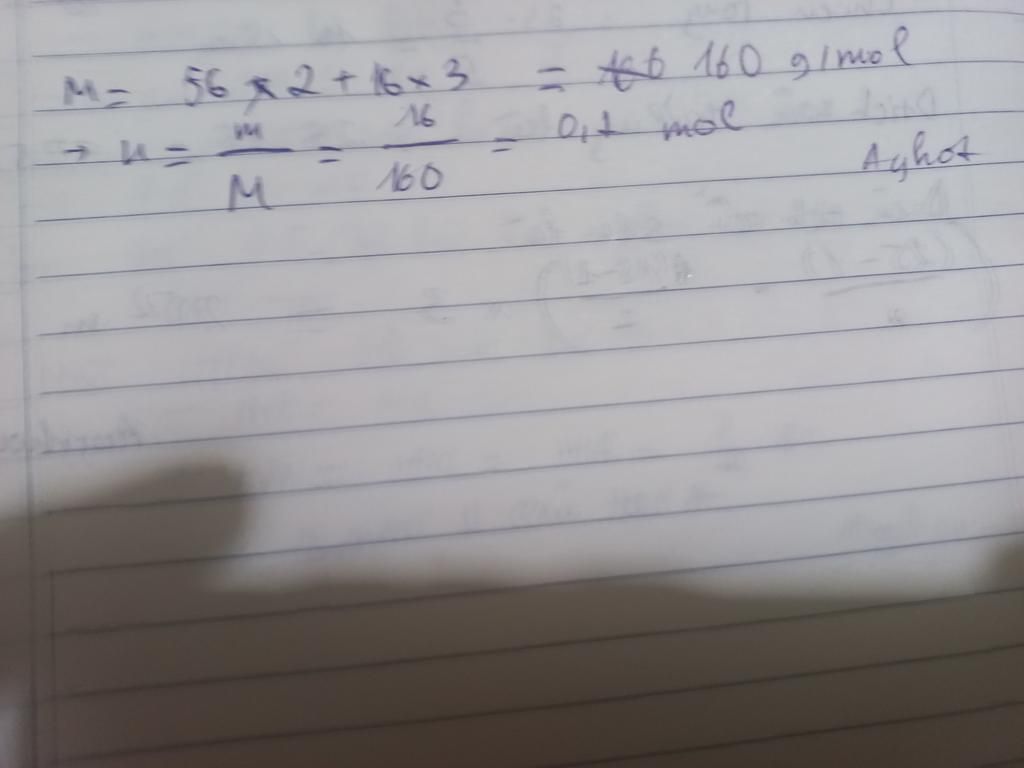 M = 56 x 2 + 16 x 3 = 160 g/mol
→ n = m/M = 16/160 = 0,1 mol
Aghot